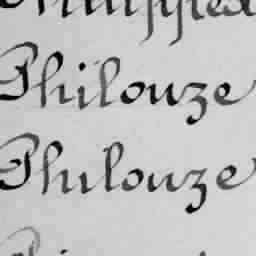 Philouze
Philouze